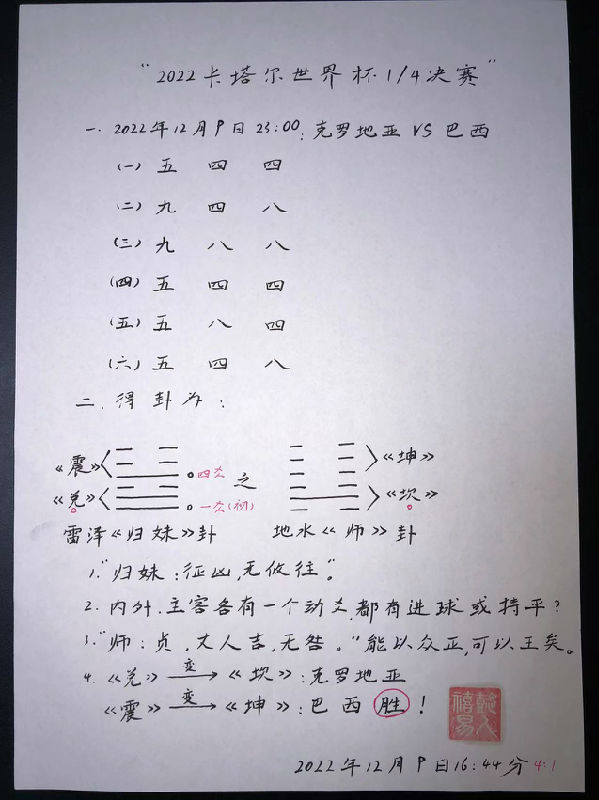 “2022卡塔尔世界杯1/4决赛”
一.2022年12月9日23:00:克罗地亚VS巴西
(一)五 四 四
(二)九 四 八
(三)九 八 八
(四)五 四 四
(五)五 八 四
(六)五 四 八
二.得卦为:
《震》 四爻 之 《坤》
《兑》 一爻(初) 《坎》
雷泽《归妹》卦 地水《师》卦
1.“归妹:征凶,无攸往”。
2.内外.主客各有一个动爻,都有进球或持平?
3.“师:贞,丈人吉,无咎。”能以众正,可以王矣。
4.《兑》 变 《坎》:克罗地亚
《震》 变 《坤》:巴西胜!
2022年12月9日16:44分 4:1